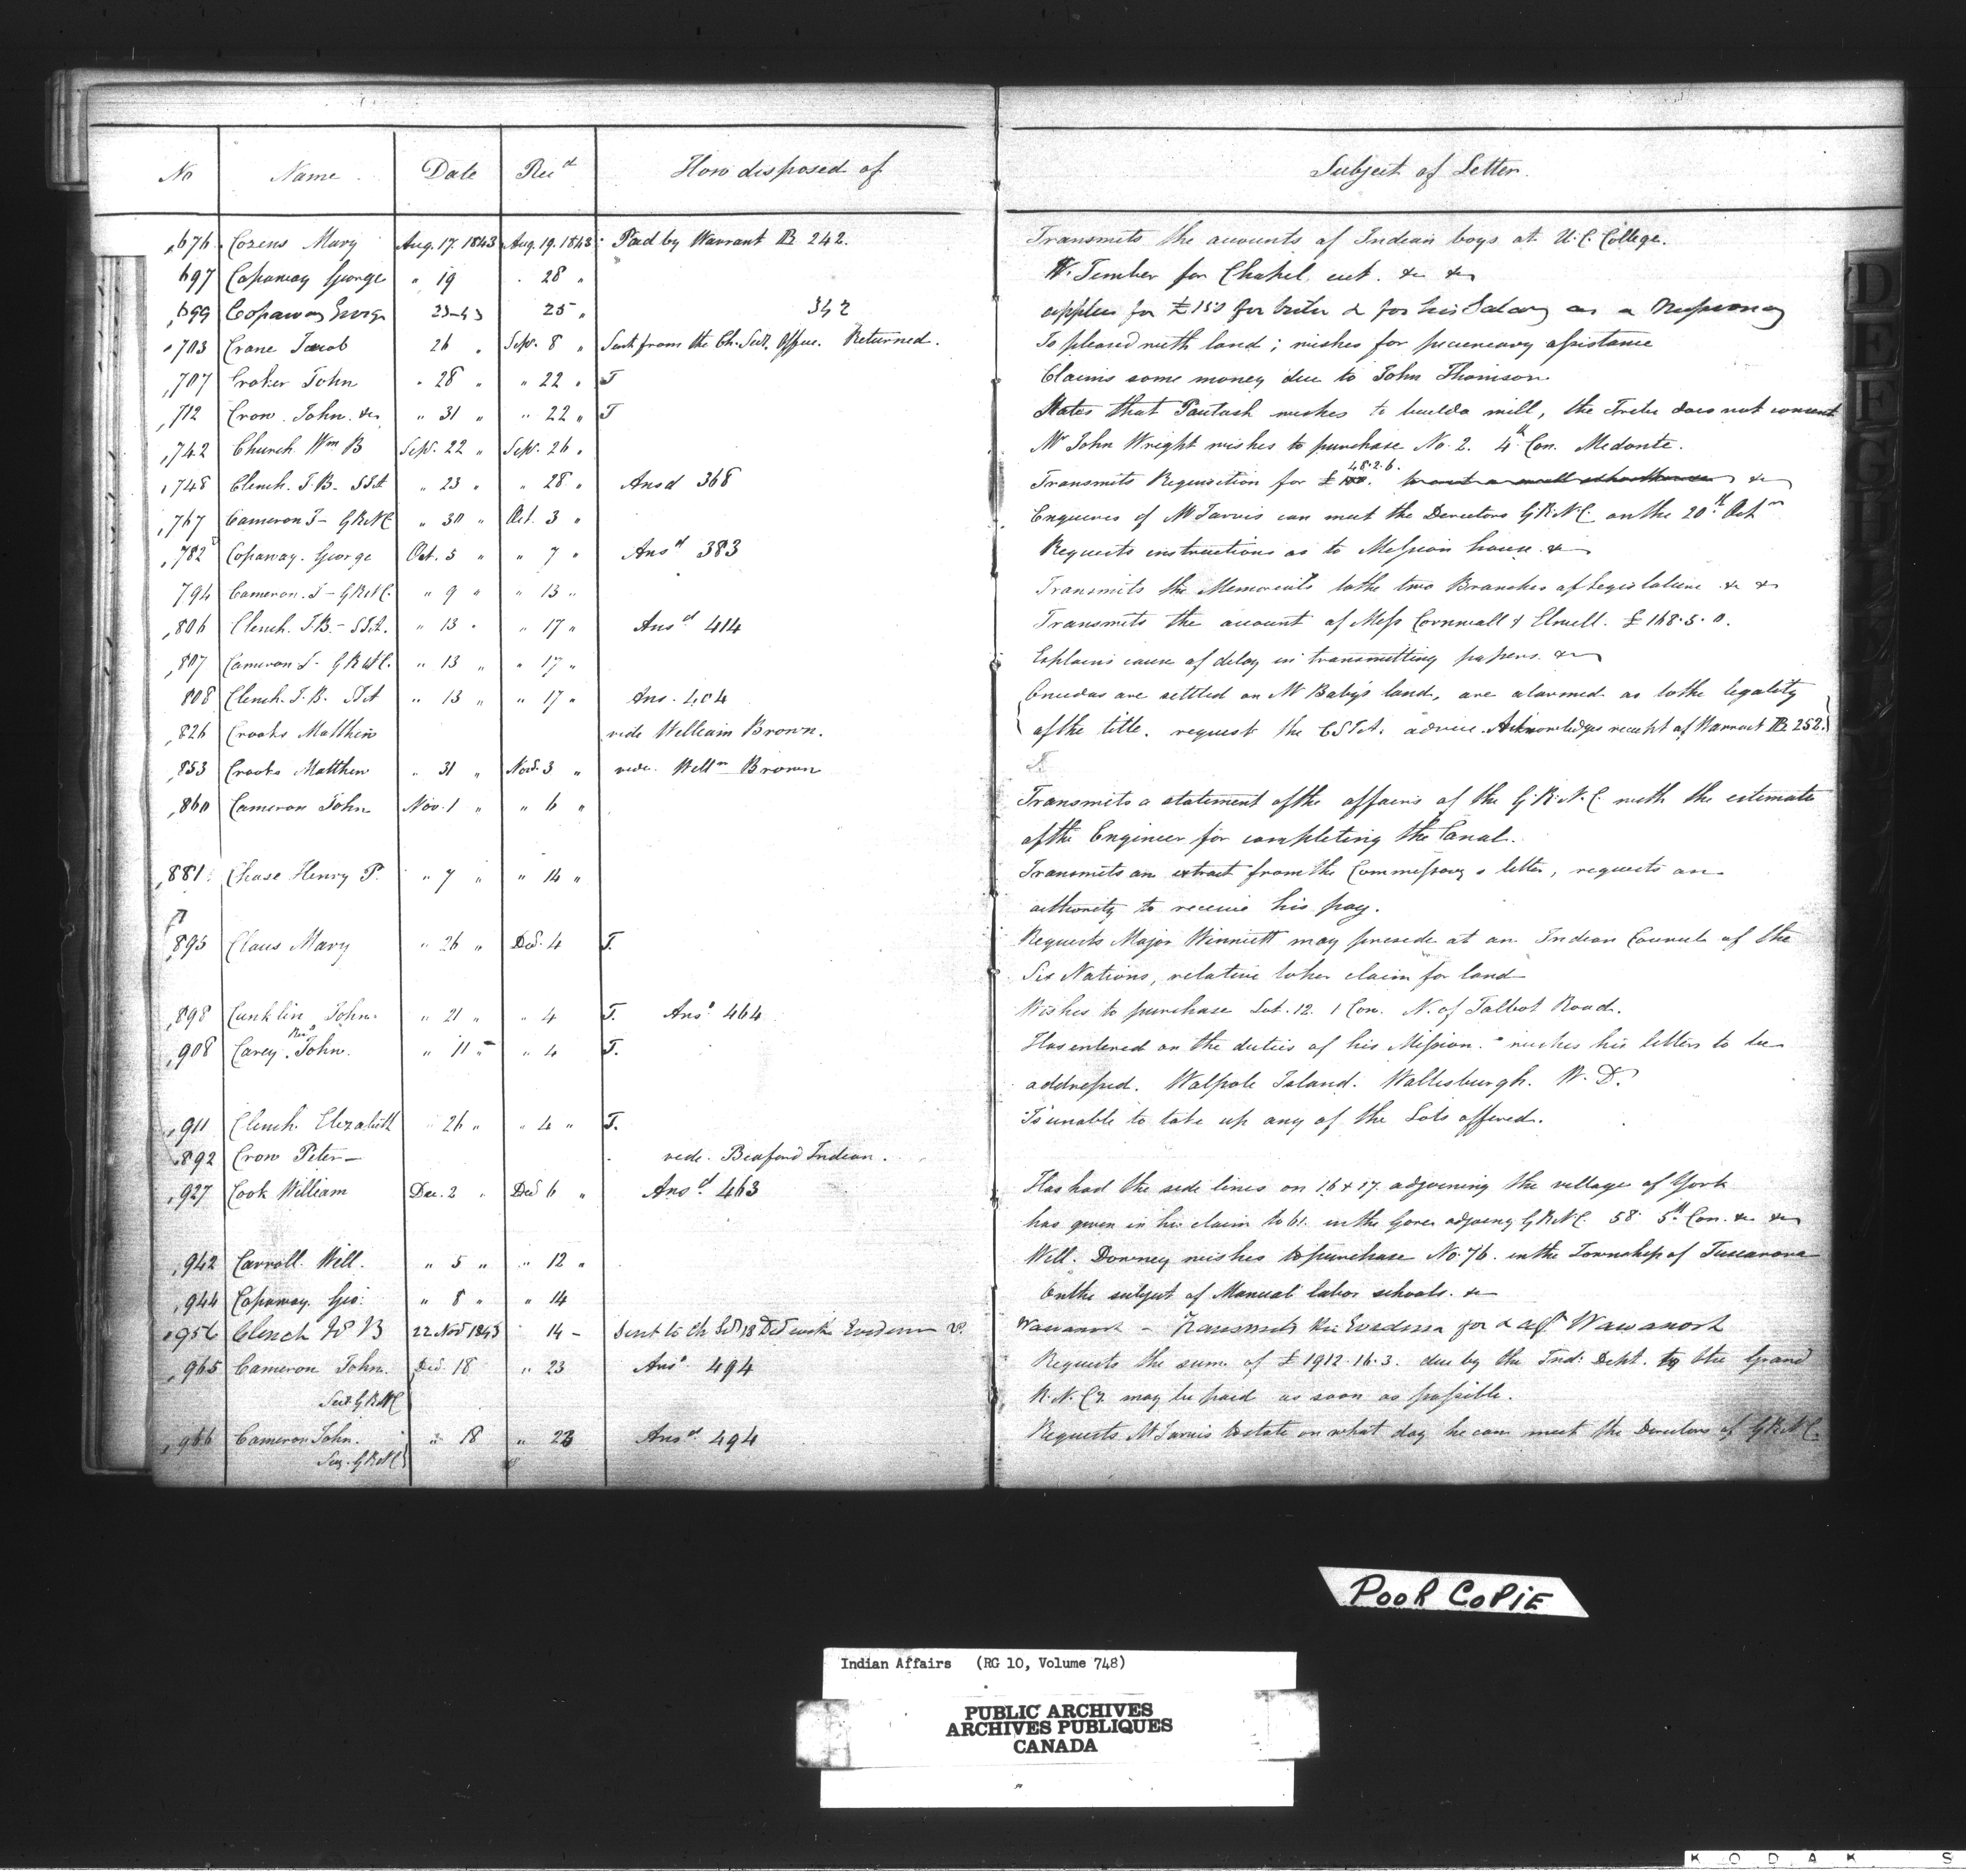 No Name Date Rec^d How disposed of Subject of Letter.
676 Cozens Mary Aug. 17. 1843 Aug. 19. 1843 Paid by Warrant B 242. Transmits the accounts of Indian boys at U.C. College.
697 Copaway George " 19 " 28 " Timber for Chapel cut. &c &c
699 Copaway George 23-43 25 " 342 applies for £150 for & for his Salary as a Missionary
703 Crane Jacob 26 " Sep. 8 " Sent from the Ch. Sec. Office. Returned. Is pleased with land; wishes for pecuneary assistance
707 Croker John " 28 " " 22 " T Claims some money due to John Thomson
712 Crow. John. &c " 31 " " 22 " T States that Pautash wishes to build a mill, the Tribe does not consent
742 Church Wm B Sep. 22 " Sep. 26 " Mr John Wright wishes to purchase No. 2. 4th Con. Medonte.
748 Clench. J.B. SIA " 23 " " 28 " Ansd 368 Transmits Requisition for £ 48.2.6. &c
767 Cameron J - GRNC " 30 " Oct. 3 " Enquires if Mr Jarvis can meet the Directors G.R.N.C. on the 20th Oct
782 Copaway. George Oct. 5 " " 7 " Ansd 383 Requests instructions as to Mission house. &c
794 Cameron. J - GRNC. " 9 " " 13 " Transmits the Memorials to the two Branches of Legislature &c &c
806 Clench. J.B. - SIA. " 13 " " 17 " Ansd 414 Transmits the account of Mess Cornwall & Elwell. £168.5.0.
807 Cameron J - GRNC. " 13 " " 17 " Explains cause of delay in transmitting papers. &c
808 Clench. J.B. SIA " 13 " " 17 " Ans. 404 Oneidas are settled on Mr Baby's land, are alarmed as to the legality
826 Crooks Matthew vide William Brown. of the title. request the CSIA. advice. Acknowledges receipt of Warrant B 252.
853 Crooks Matthew " 31 " Nov. 3 " vide. Willm Brown
860 Cameron John Nov. 1 " " 6 " Transmits a statement of the affairs of the G.R.N.C. with the estimate
of the Engineer for completing the Canal.
881 Chase Henry P. " 7 " " 14 " Transmits an extract from the Commissary s letter, requests an
authority to receive his pay.
895 Claus Mary " 26 " Dec. 4 T. Requests Major Winniett may preside at an Indian Council of the
Six Nations, relative to her claim for land
898 Cunklin John. " 21 " " 4 T. Ansd 464 Wishes to purchase Lot. 12. 1 Con. N. of Talbot Road.
908 Carey Revd John. " 11 " " 4 T. Has entered on the duties of his Mission. wishes his letters to be
addressed. Walpole Island. Wallisburgh. W. D.
911 Clench Elizabeth " 26 " " 4 " T. Is unable to take up any of the Lots offered.
892 Crow Peter - vide. Indian.
927 Cook William Dec. 2 " Dec 6 " Ansd. 463 Has had the side lines on 16 & 17 adjoining the village of York
has given in his claim to 61. in the Gore GRNC. 58. 5th Con. &c &c
942 Carroll. Will. " 5 " " 12 " Will. Downey wishes to purchase No. 76. in the Township of Tuscarora
944 Copaway. Geo. " 8 " " 14 On the subject of Manual labor schools. &c
956 Clench J B 22 Nov 1843 14 - Sent to Ch Sec 18 Dec with Evidence Wawanosh - Transmits the Evidence for & agt Wawanosh
965 Cameron John. Dec. 18 " 23 Ansd. 494 Requests the sum of £1912.16.3. due by the Ind: Dept. to the Grand
Sect GRNC R.N. Cy. may be paid as soon as possible.
966 Cameron John. " 18 " 23 Ansd 494 Requests Mr Jarvis to state on what day he can meet the Directors of GRNC.
Sec. GRNC
D
E
F
G
H
POOR COPIE
Indian Affairs (RG 10, Volume 748)
PUBLIC ARCHIVES
ARCHIVES PUBLIQUES
CANADA
KODAK S